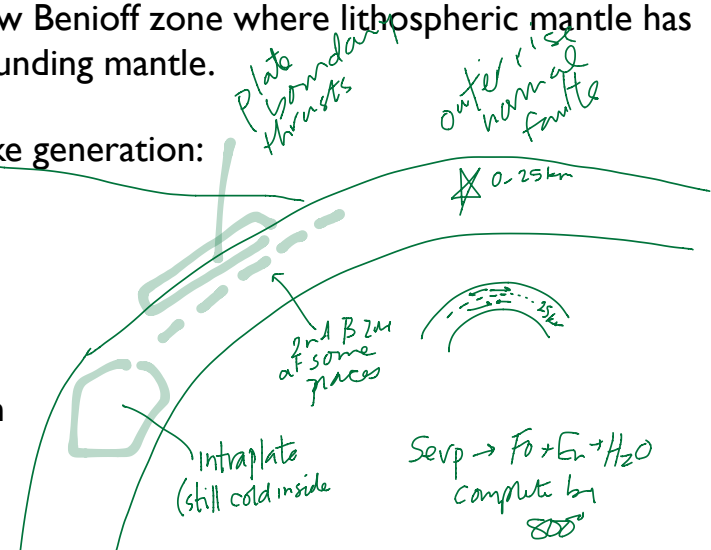 w Benioff zone where lithospheric mantle has
unding mantle.
Plate
boundary
thrusts
outer rise
normal
faults
ke generation:
0-25km
25km
2nd B zn
at some
places
n
intraplate
(still cold inside
Serp → Fo + En + H₂O
complete by
800°